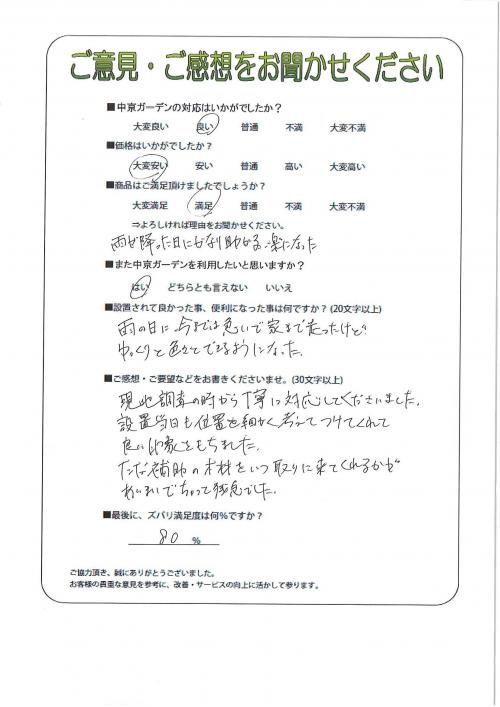 ご意見・ご感想をお聞かせください
■中京ガーデンの対応はいかがでしたか？
大変良い 良い 普通 不満 大変不満
■価格はいかがでしたか？
大変安い 安い 普通 高い 大変高い
■商品はご満足頂けましたでしょうか？
大変満足 満足 普通 不満 大変不満
⇒よろしければ理由をお聞かせください。
雨が降った日にかなり助かる。楽になった
■また中京ガーデンを利用したいと思いますか？
はい どちらとも言えない いいえ
■設置されて良かった事、便利になった事は何ですか？(20文字以上)
雨の日に今までは急いで家まで走ったけど
ゆっくりと色々とできるようになった。
■ご感想・ご要望などをお書きくださいませ。(30文字以上)
現地調査の時から丁寧に対応してくださいました。
設置当日も位置を細かく考えてつけてくれて
良い印象をもちました。
ただ補助の木材をいつ取りに来てくれるかが
あいまいでちょっと残念でした。
■最後に、ズバリ満足度は何％ですか？
80 ％
ご協力頂き、誠にありがとうございました。
お客様の貴重な意見を参考に、改善・サービスの向上に活かして参ります。